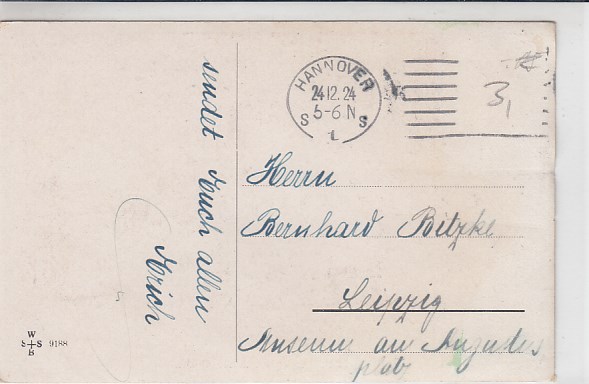 HANNOVER
24.12.24
5-6 N
S S
1
3,
Herrn
Bernhard Bitzke
Leipzig
Museum am Augustus
platz
sendet Euch allen
Erich
W
S S 9188
B